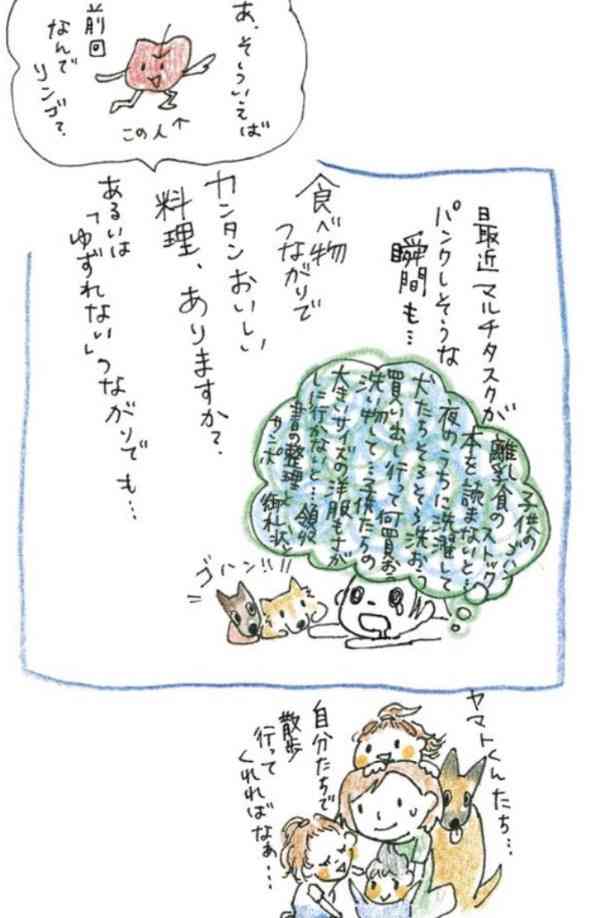 あ、そういえば
前回
なんで
リンゴ?
この人↑
最近マルチタスクが
パンクしそうな
瞬間も…
子供のゴハン
離乳食のストック
本を読まないと…
夜のうちに洗濯して
犬たちそろそろ洗おう
買い出し行って何買お
洗い物して…子供たちの
大きいサイズの洋服もサガ
しに行かないと…領収
書の整理
御礼状
ゴハン!!!
食べ物
つながりで
カンタンおいしい
料理、ありますか?
あるいは
「ゆずれない」つながりでも…
ヤマトくんたち…
自分たちで
散歩
行って
くれればなぁ…